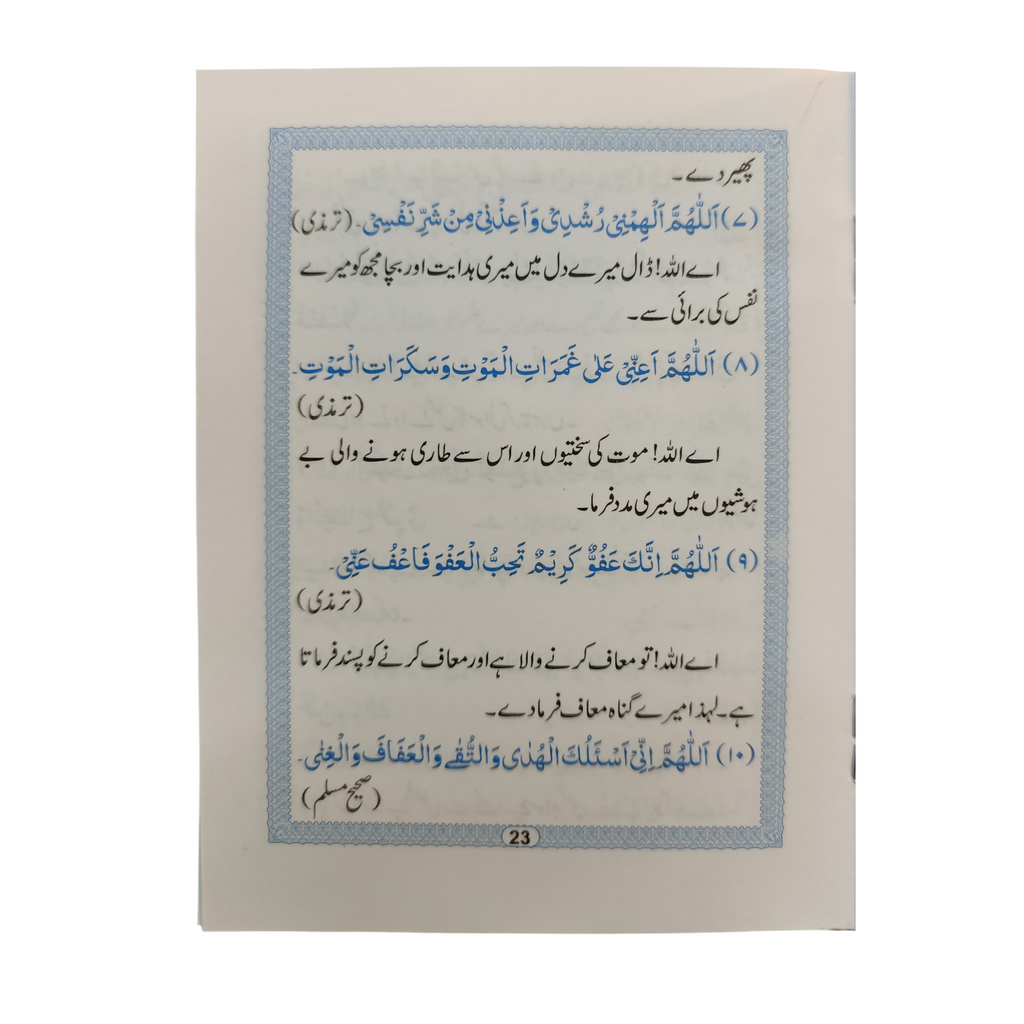 پھیر دے۔
(۷) اَللّٰهُمَّ اَلْهِمْنِیْ رُشْدِیْ وَاَعِذْنِیْ مِنْ شَرِّ نَفْسِیْ۔ (ترمذی)
اے اللہ! ڈال میرے دل میں میری ہدایت اور بچا مجھ کو میرے
نفس کی برائی سے۔
(۸) اَللّٰهُمَّ اَعِنِّیْ عَلٰی غَمَرَاتِ الْمَوْتِ وَسَكَرَاتِ الْمَوْتِ۔
(ترمذی)
اے اللہ! موت کی سختیوں اور اس سے طاری ہونے والی بے
ہوشیوں میں میری مدد فرما۔
(۹) اَللّٰهُمَّ اِنَّكَ عَفُوٌّ كَرِیْمٌ تُحِبُّ الْعَفْوَ فَاعْفُ عَنِّیْ۔
(ترمذی)
اے اللہ! تو معاف کرنے والا ہے اور معاف کرنے کو پسند فرماتا
ہے۔ لہذا میرے گناہ معاف فرما دے۔
(۱۰) اَللّٰهُمَّ اِنِّیْ اَسْئَلُكَ الْهُدٰی وَالتُّقٰی وَالْعَفَافَ وَالْغِنٰی۔
(صحیح مسلم)
23